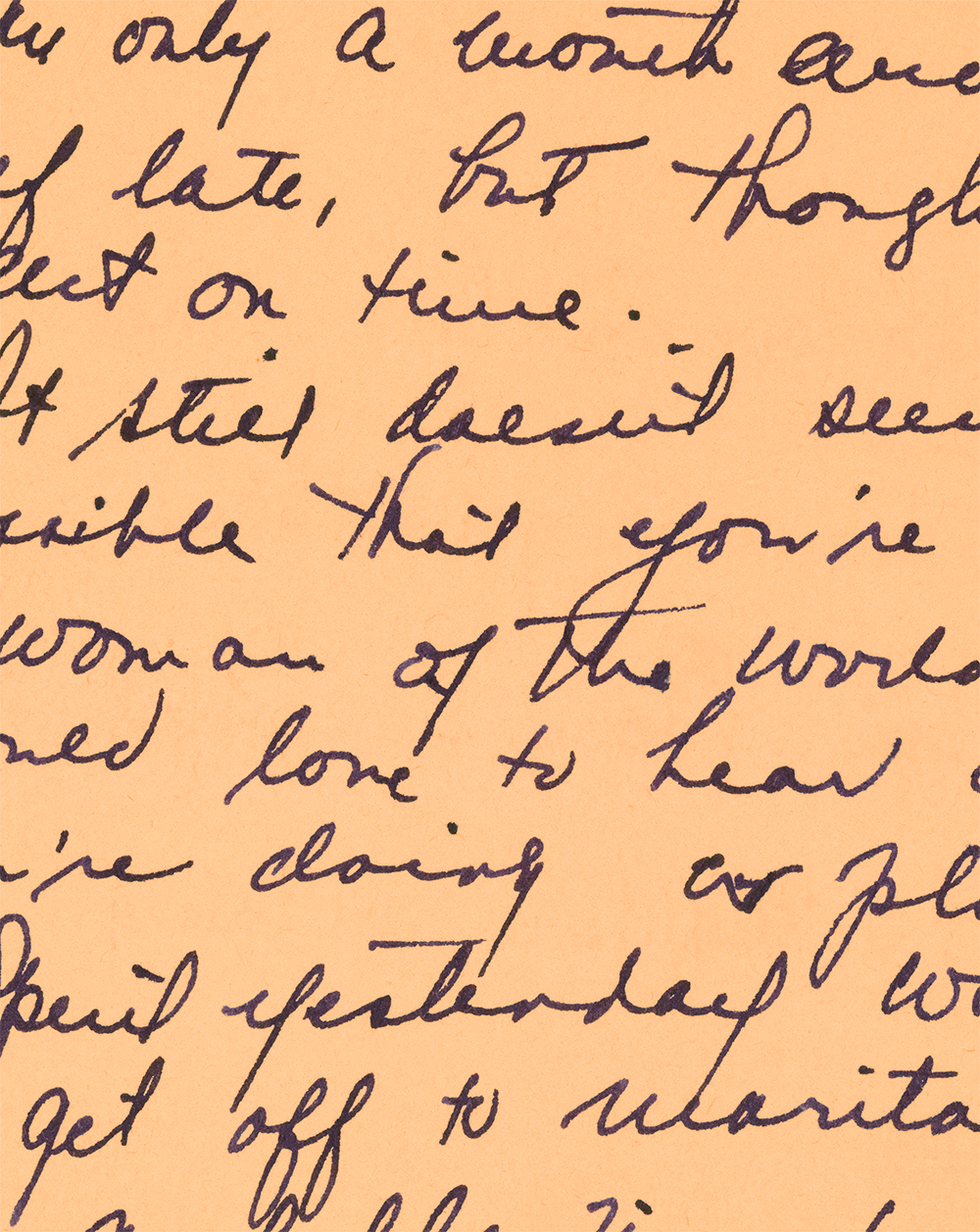 only a month and
of late, but though
on time.
It still doesn't seem
ssible that you're
woman of the world
ould love to hear
u're doing or pl
Spent yesterday w
get off to marita